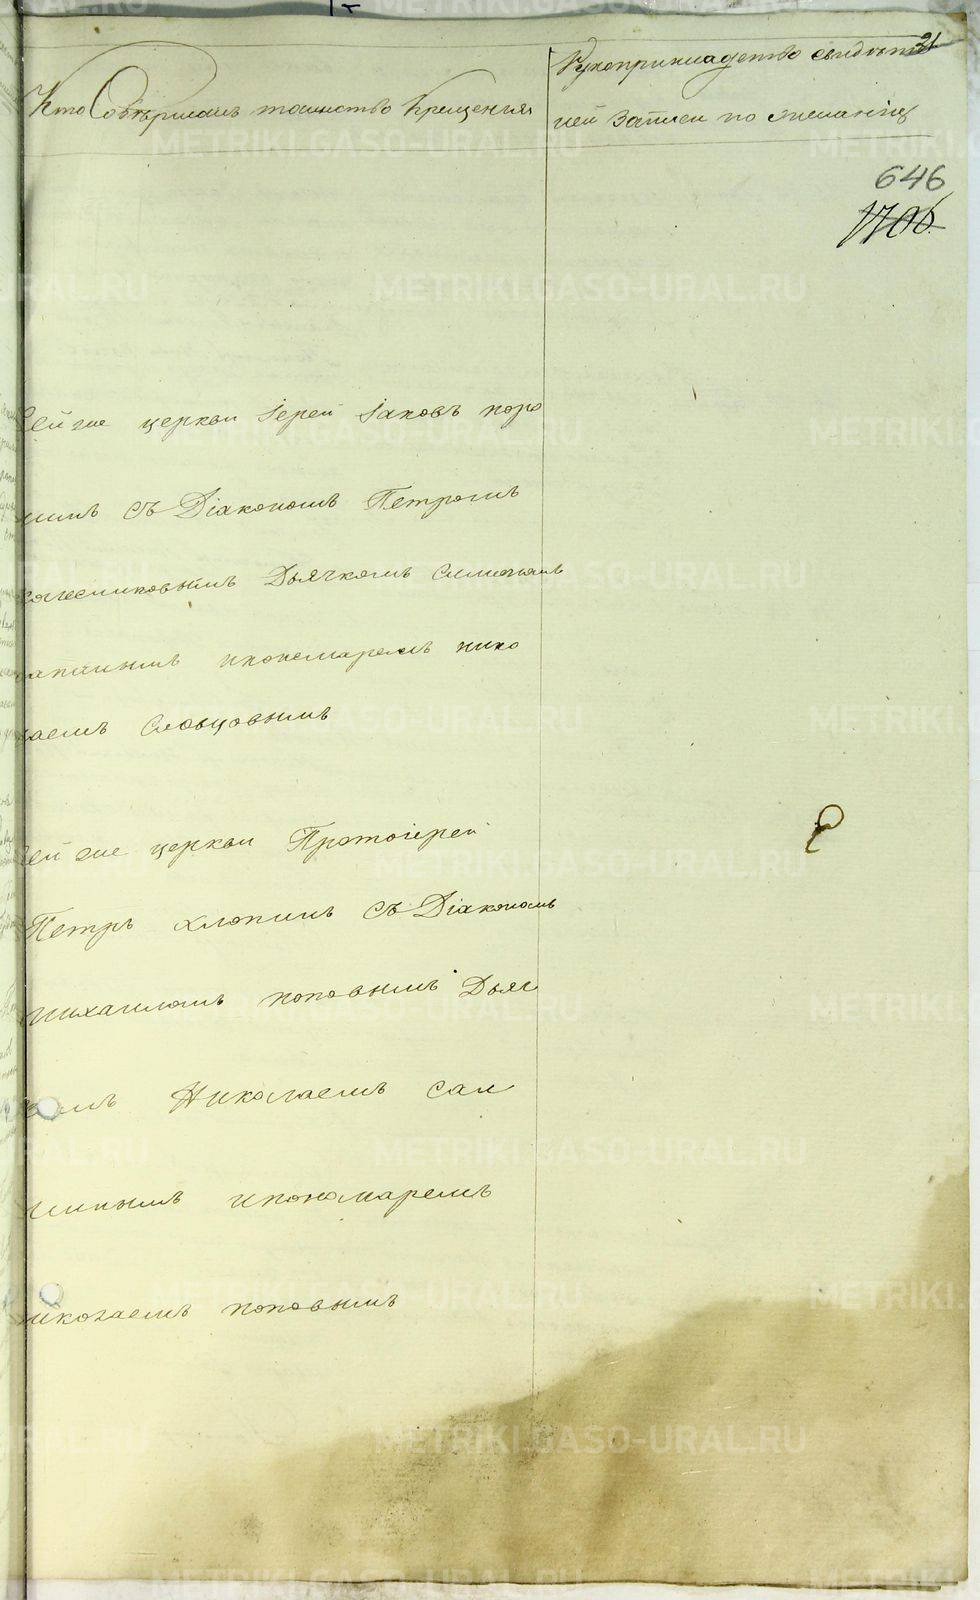 21
Кто Совершалъ таинство Крещенія
Рукоприкладство свидѣте
лей записи по желанію
646
1706.
Сей же церкви Іерей Іаковъ
съ Діакономъ Петромъ
Дьячкомъ Симеономъ
пономаремъ Нико
лаемъ Словцовымъ
Сей же церкви Протоіерей
Петръ Хлопинъ съ Діакономъ
Михаиломъ Поповымъ Дьяч
комъ Николаемъ Сап
и пономаремъ
Николаемъ Поповымъ
METRIKI.GASO-URAL.RU